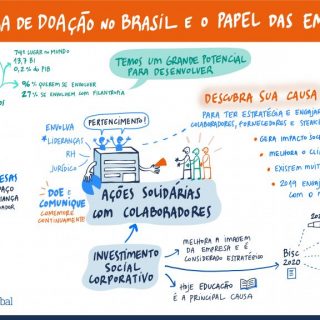 A DE DOAÇÃO NO BRASIL E O PAPEL DAS EM
74º LUGAR NO MUNDO
13,7 BI
0,2% DO PIB
96% QUEREM SE ENVOLVER
27% SE ENVOLVEM COM FILANTROPIA
TEMOS UM GRANDE POTENCIAL
PARA DESENVOLVER
DESCUBRA SUA CAUSA
PARA TER ESTRATÉGIA E ENGAJAR
COLABORADORES, FORNECEDORES E STEAK
GERA IMPACTO SOC
MELHORA O CLI
EXISTEM MUIT
2019 ENGA
COM O
PERTENCIMENTO!
ENVOLVA
LIDERANÇAS
RH
JURÍDICO
DOE E
COMUNIQUE
COMEMORE
CONTINUAMENTE!
AÇÕES SOLIDÁRIAS
COM COLABORADORES
ESAS
PAÇO
IANÇA
ADOR
INVESTIMENTO
SOCIAL
CORPORATIVO
MELHORA A IMAGEM
DA EMPRESA E É
CONSIDERADO ESTRATÉGICO
HOJE EDUCAÇÃO
É A PRINCIPAL CAUSA
BISC
2020
bal